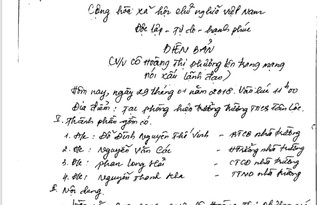 Cộng hòa xã hội chủ nghĩa Việt Nam
Độc lập - Tự do - hạnh phúc
BIÊN BẢN
(V/v cô Hoàng Thị phương lên trang mạng
nói xấu lãnh đạo)
Hôm nay, ngày 29 tháng 01 năm 2018. Vào lúc 11h00
Địa điểm: Tại phòng hiệu trưởng trường THCS Tân Lộc.
I. Thành phần gồm có.
1. Đ/c: Đỗ Đình Nguyên Thế Vinh - BTCB nhà trường
2. Đ/c: Nguyễn Văn Các - H trưởng nhà trường
3. Đ/c: phan Long Hải - CTCĐ nhà trường
4. Đ/c: Nguyễn Thanh Kha - TTND nhà trường
II. Nội dung.